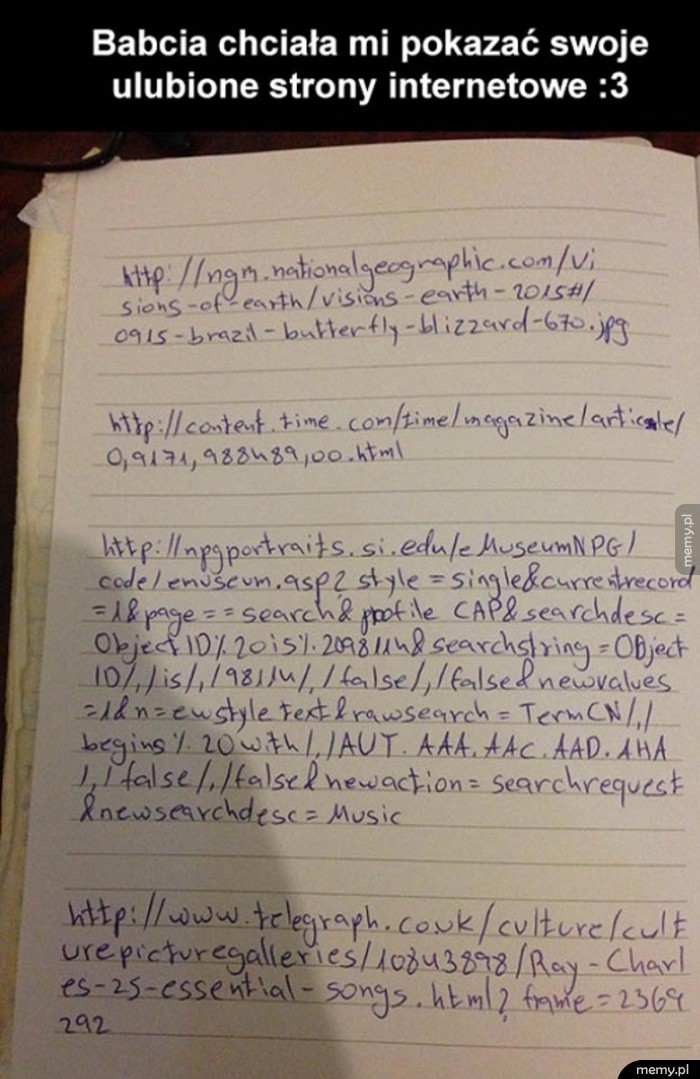 Babcia chciała mi pokazać swoje
ulubione strony internetowe :3
http://ngm.nationalgeographic.com/vi
sions-of-earth/visions-earth-2015#/
0915-brazil-butterfly-blizzard-670.jpg
http://content.time.com/time/magazine/article/
0,9171,988489,00.html
memy.pl
http://npgportraits.si.edu/eMuseumNPG/
code/emuseum.asp?style=single&currentrecord
=1&page==search&profile CAP&searchdesc=
Object ID%20is%209811u&searchstring=Object
ID/,/is/,/9811u/,/false/,/false&newvalues
=1&n=ewstyle text&rawsearch=TermCN/,/
begins%20with/,/AUT.AAA.AAC.AAD.AHA
/,/false/,/false&newaction=searchrequest
&newsearchdesc=Music
http://www.telegraph.co.uk/culture/cult
urepicturegalleries/10843898/Ray-Charl
es-25-essential-songs.html?frame=2369
292
memy.pl